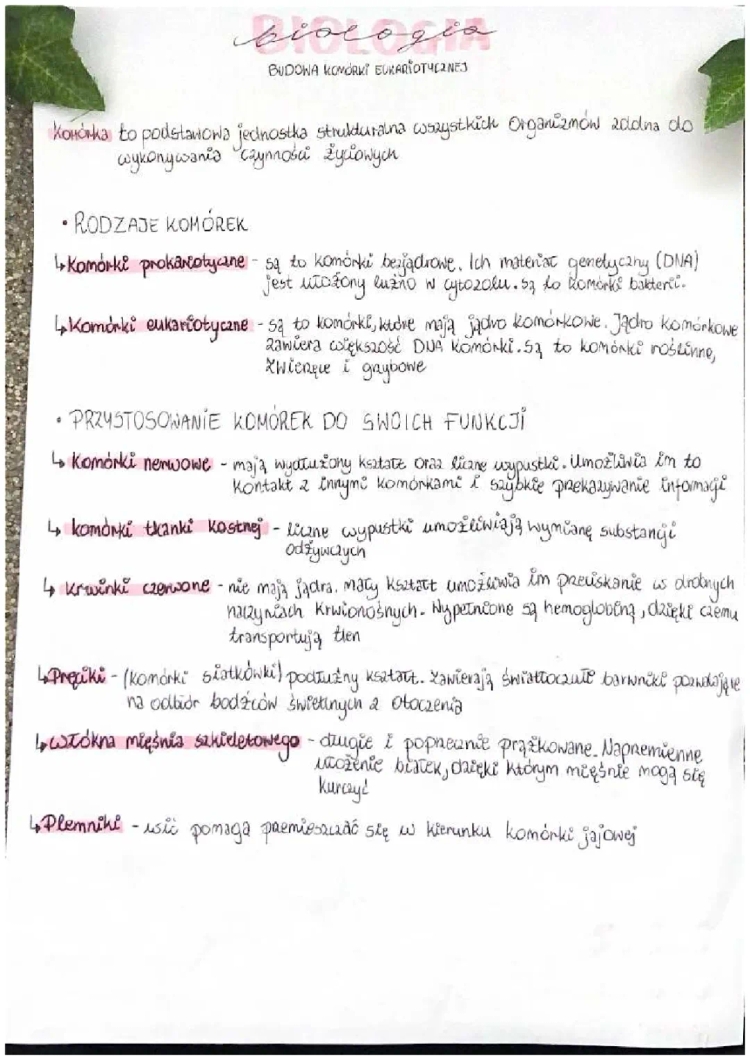 BIOLOGIA
biologia
BUDOWA KOMÓRKI EUKARIOTYCZNEJ
Komórka to podstawowa jednostka strukturalna wszystkich organizmów zdolna do
wykonywania czynności życiowych
• RODZAJE KOMÓREK
↳ Komórki prokariotyczne - są to komórki bezjądrowe. Ich materiał genetyczny (DNA)
jest ułożony luźno w cytozolu. są to komórki bakterii.
↳ Komórki eukariotyczne - są to komórki, które mają jądro komórkowe. Jądro komórkowe
zawiera większość DNA komórki. Są to komórki roślinne,
zwierzęce i grzybowe
• PRZYSTOSOWANIE KOMÓREK DO SWOICH FUNKCJI
↳ Komórki nerwowe - mają wydłużony kształt oraz liczne wypustki. Umożliwia im to
kontakt z innymi komórkami i szybkie przekazywanie informacji
↳ komórki tkanki kostnej - liczne wypustki umożliwiają wymianę substancji
odżywczych
↳ krwinki czerwone - nie mają jądra. mały kształt umożliwia im przeciskanie w drobnych
naczyniach krwionośnych. Wypełnione są hemoglobiną, dzięki czemu
transportują tlen
↳ Pręciki - (komórki siatkówki) podłużny kształt. zawierają światłoczułe barwniki pozwalające
na odbiór bodźców świetlnych z otoczenia
↳ włókna mięśnia szkieletowego - długie i poprzecznie prążkowane. Naprzemienne
ułożenie białek, dzięki którym mięśnie mogą się
kurczyć
↳ Plemniki - wić pomaga przemieszczać się w kierunku komórki jajowej